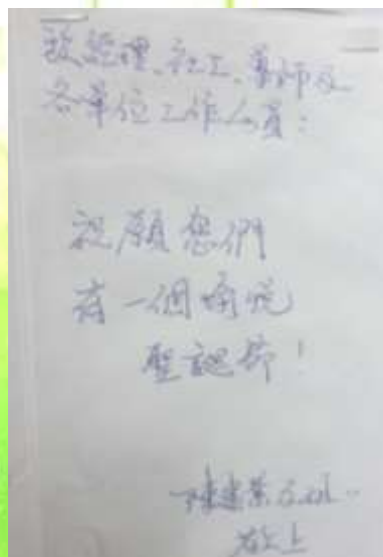 致經理、社工、
各單位工作人員:
祝願您們
有一個愉悅
聖誕節!
敬上